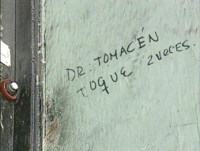 DR. TOMACEN
TOQUE 2 VOCES.